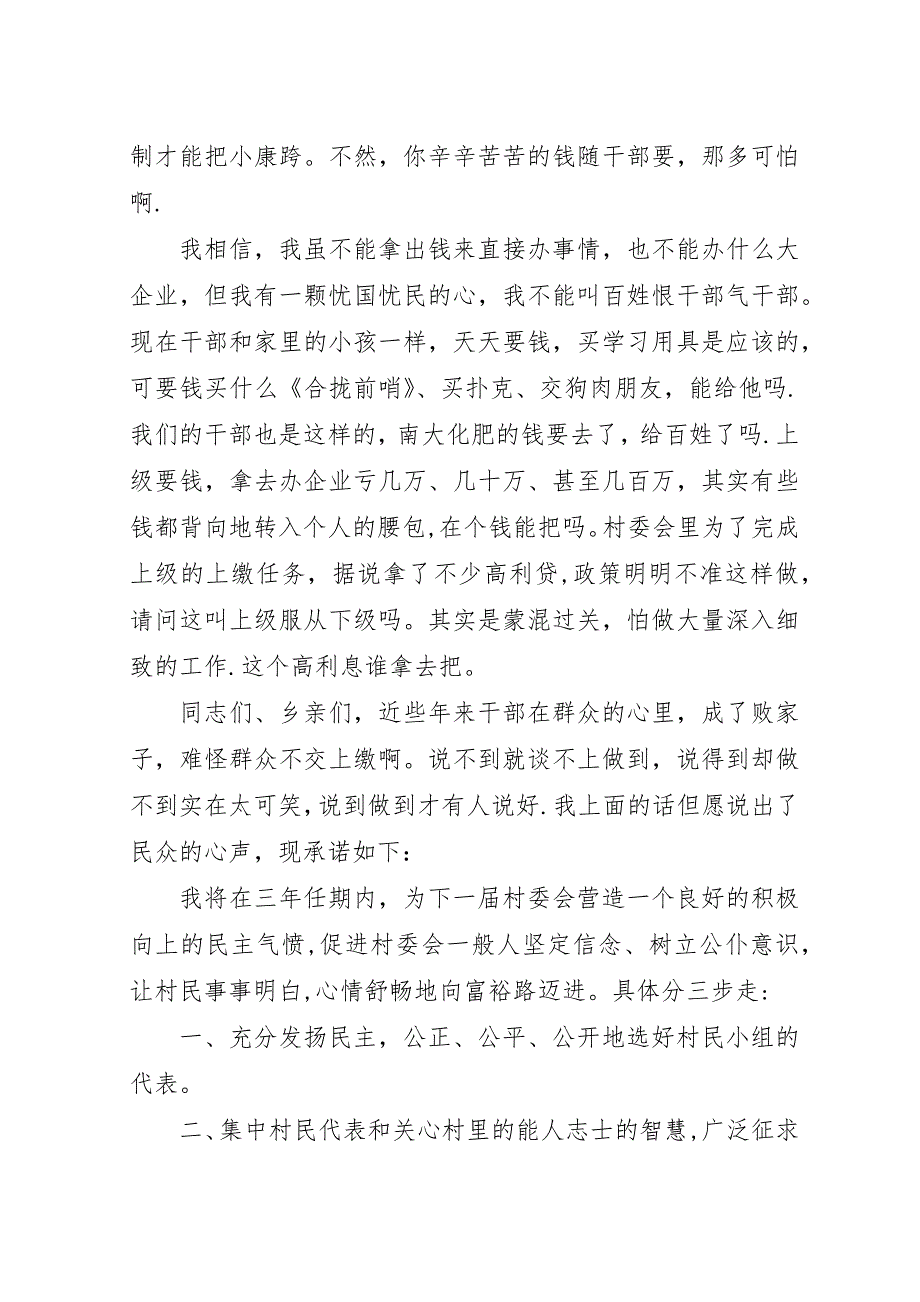 制才能把小康跨。不然，你辛辛苦苦的钱随干部要，那多可怕
啊.
我相信，我虽不能拿出钱来直接办事情，也不能办什么大
企业，但我有一颗忧国忧民的心，我不能叫百姓恨干部气干部。
现在干部和家里的小孩一样，天天要钱，买学习用具是应该的，
可要钱买什么《合拢前哨》、买扑克、交狗肉朋友，能给他吗.
我们的干部也是这样的，南大化肥的钱要去了，给百姓了吗.上
级要钱，拿去办企业亏几万、几十万、甚至几百万，其实有些
钱都背向地转入个人的腰包,在个钱能把吗。村委会里为了完成
上级的上缴任务，据说拿了不少高利贷,政策明明不准这样做，
请问这叫上级服从下级吗。其实是蒙混过关，怕做大量深入细
致的工作.这个高利息谁拿去把。
同志们、乡亲们，近些年来干部在群众的心里，成了败家
子，难怪群众不交上缴啊。说不到就谈不上做到，说得到却做
不到实在太可笑,说到做到才有人说好.我上面的话但愿说出了
民众的心声，现承诺如下：
我将在三年任期内，为下一届村委会营造一个良好的积极
向上的民主气愤,促进村委会一般人坚定信念、树立公仆意识，
让村民事事明白,心情舒畅地向富裕路迈进。具体分三步走:
一、充分发扬民主，公正、公平、公开地选好村民小组的
代表。
二、集中村民代表和关心村里的能人志士的智慧,广泛征求